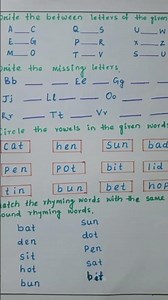 Write the between letters of the given
A __ C Q __ S U __ W
E __ G P __ R X __ Z
M __ O T __ V S __ U
Write the missing letters.
Bb ___ ___ Ee Gg ___
Jj ___ Ll ___ Oo ___
Rr ___ Tt ___ Vv ___
Circle the vowels in the given word
Cat hen Sun bad
Pen Pot bit lid
tin bun bet hop
Match the rhyming words with the same
sound rhyming words.
bat sun
den dot
sit Pen
hot sat
bun bit